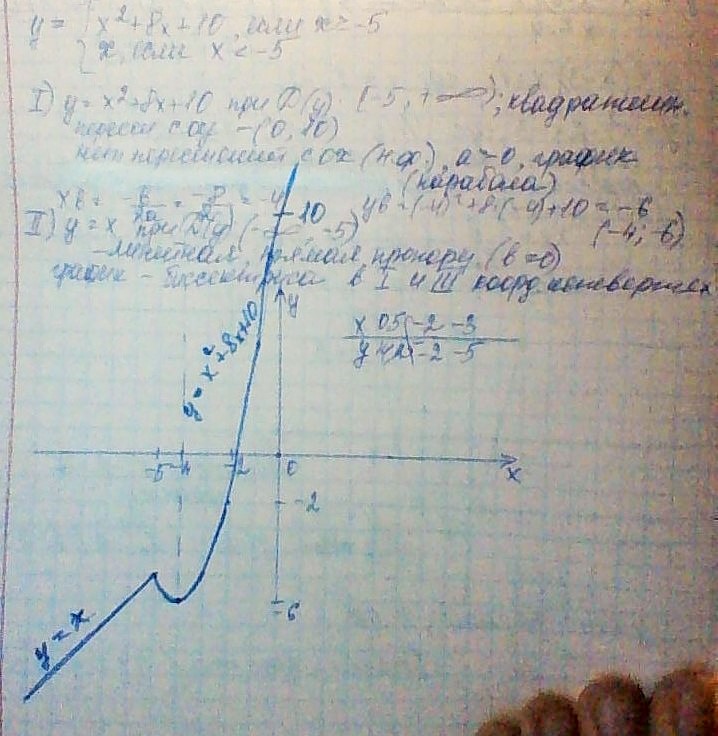 y = { x²+8x+10, если x ≥ -5
{ x, если x < -5
I) y = x²+8x+10 при D(y): [-5, +∞); квадратичн.
пересеч с oy - (0, 10)
нет пересечений с ox (н.ф.), a > 0, график
(парабола)
xв = -b/2a = -8/2 = -4 yв = (-4)²+8·(-4)+10 = -6
(-4; -6)
II) y = x при D(y) (-∞ -5)
- линейная, прямая пропорц. (b = 0)
график - биссектриса в I и III коорд. четвертях
x 0,5 -2 -3
y -2 -5
y = x²+8x+10
10
y
-5 -4 -2 0 x
-2
-6
y = x